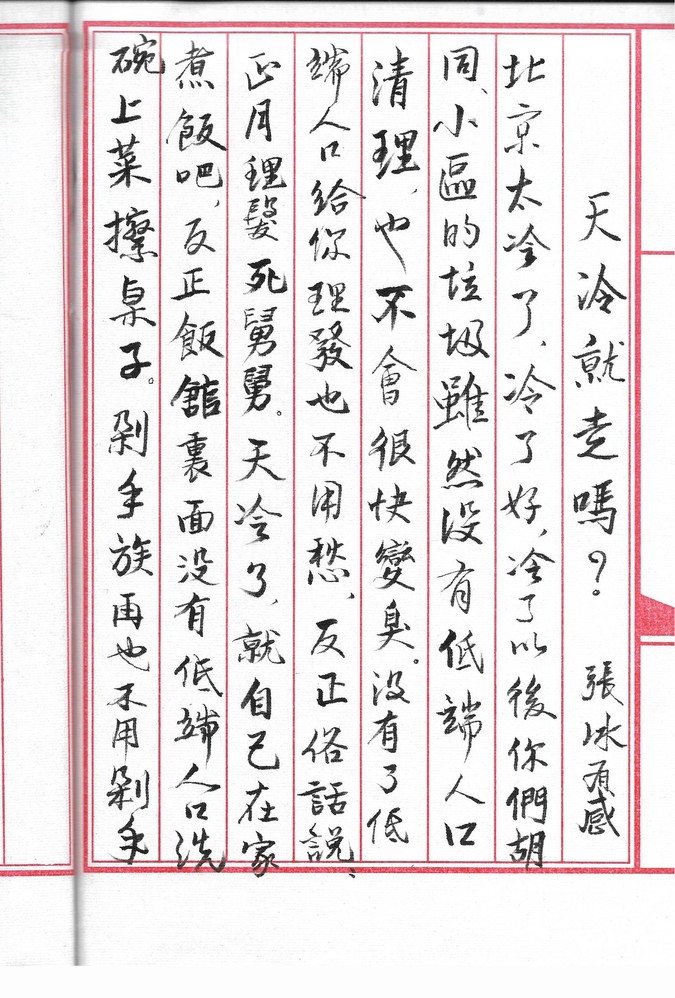 天冷就走嗎？　張冰有感
北京太冷了、冷了好、冷了以後你們胡
同、小區的垃圾雖然没有低端人口
清理，也不會很快變臭。没有了低
端人口給你理發也不用愁、反正俗話説、
正月理髮死舅舅。天冷了、就自己在家
煮飯吧，反正飯館裏面没有低端人口洗
碗上菜擦桌子。剁手族再也不用剁手